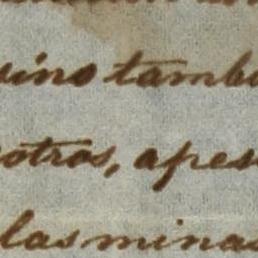 vino tamb
otros, apes
las minas